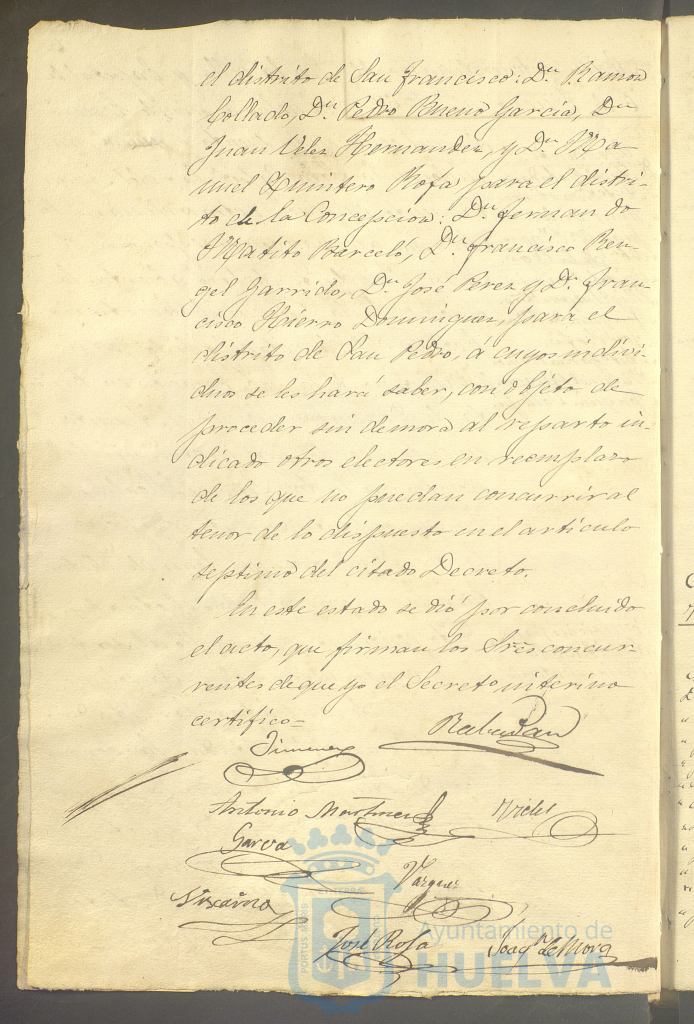 el distrito de San Francisco: Dn. Ramon
Collado, Dn. Pedro Bueno Garcia, Dn
Juan Velez Hernandez, y Dn. Ma
nuel Quintero Rofa para el distri-
to de la Concepcion: Dn. Fernando
Matito Barceló, Dn. Francisco Ren-
gel Garrido, Dn. José Perez y Dn. Fran-
cisco Hierro Dominguez, para el
distrito de San Pedro, á cuyos indivi-
duos se les hará saber, con objeto de
proceder sin demora al reparto in-
dicado otros electores en reemplazo
de los que no puedan concurrir al
tenor de lo dispuesto en el articulo
septimo del citado Decreto.
En este estado se dió por concluido
el acto, que firman los Sres concur-
rentes de que yo el Secreto interino
certifico=
Jimenez
Antonio Martinez
Garcia
Vazquez
Vizcaino
José Rofa Joaqn. de Mora
Ayuntamiento de
HUELVA